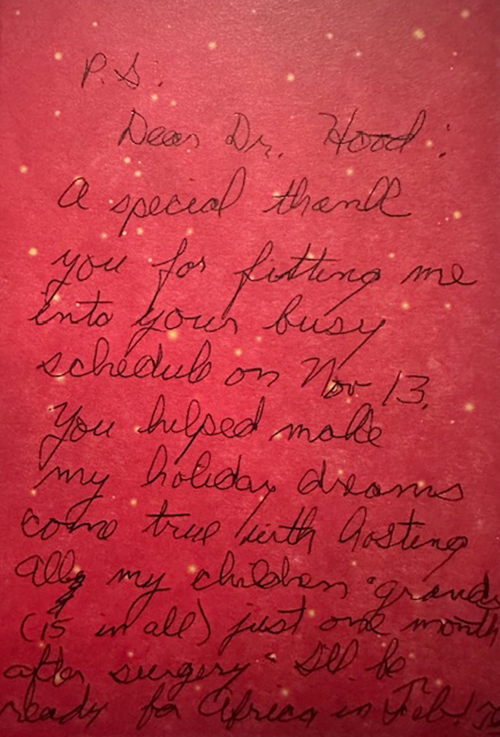 P.S.
Dear Dr. Hood:
A special thank
you for fitting me
into your busy
schedule on Nov 13.
You helped make
my holiday dreams
come true with hosting
all my children grands
(15 in all) just one month
after surgery. I'll be
ready for Africa in Feb!